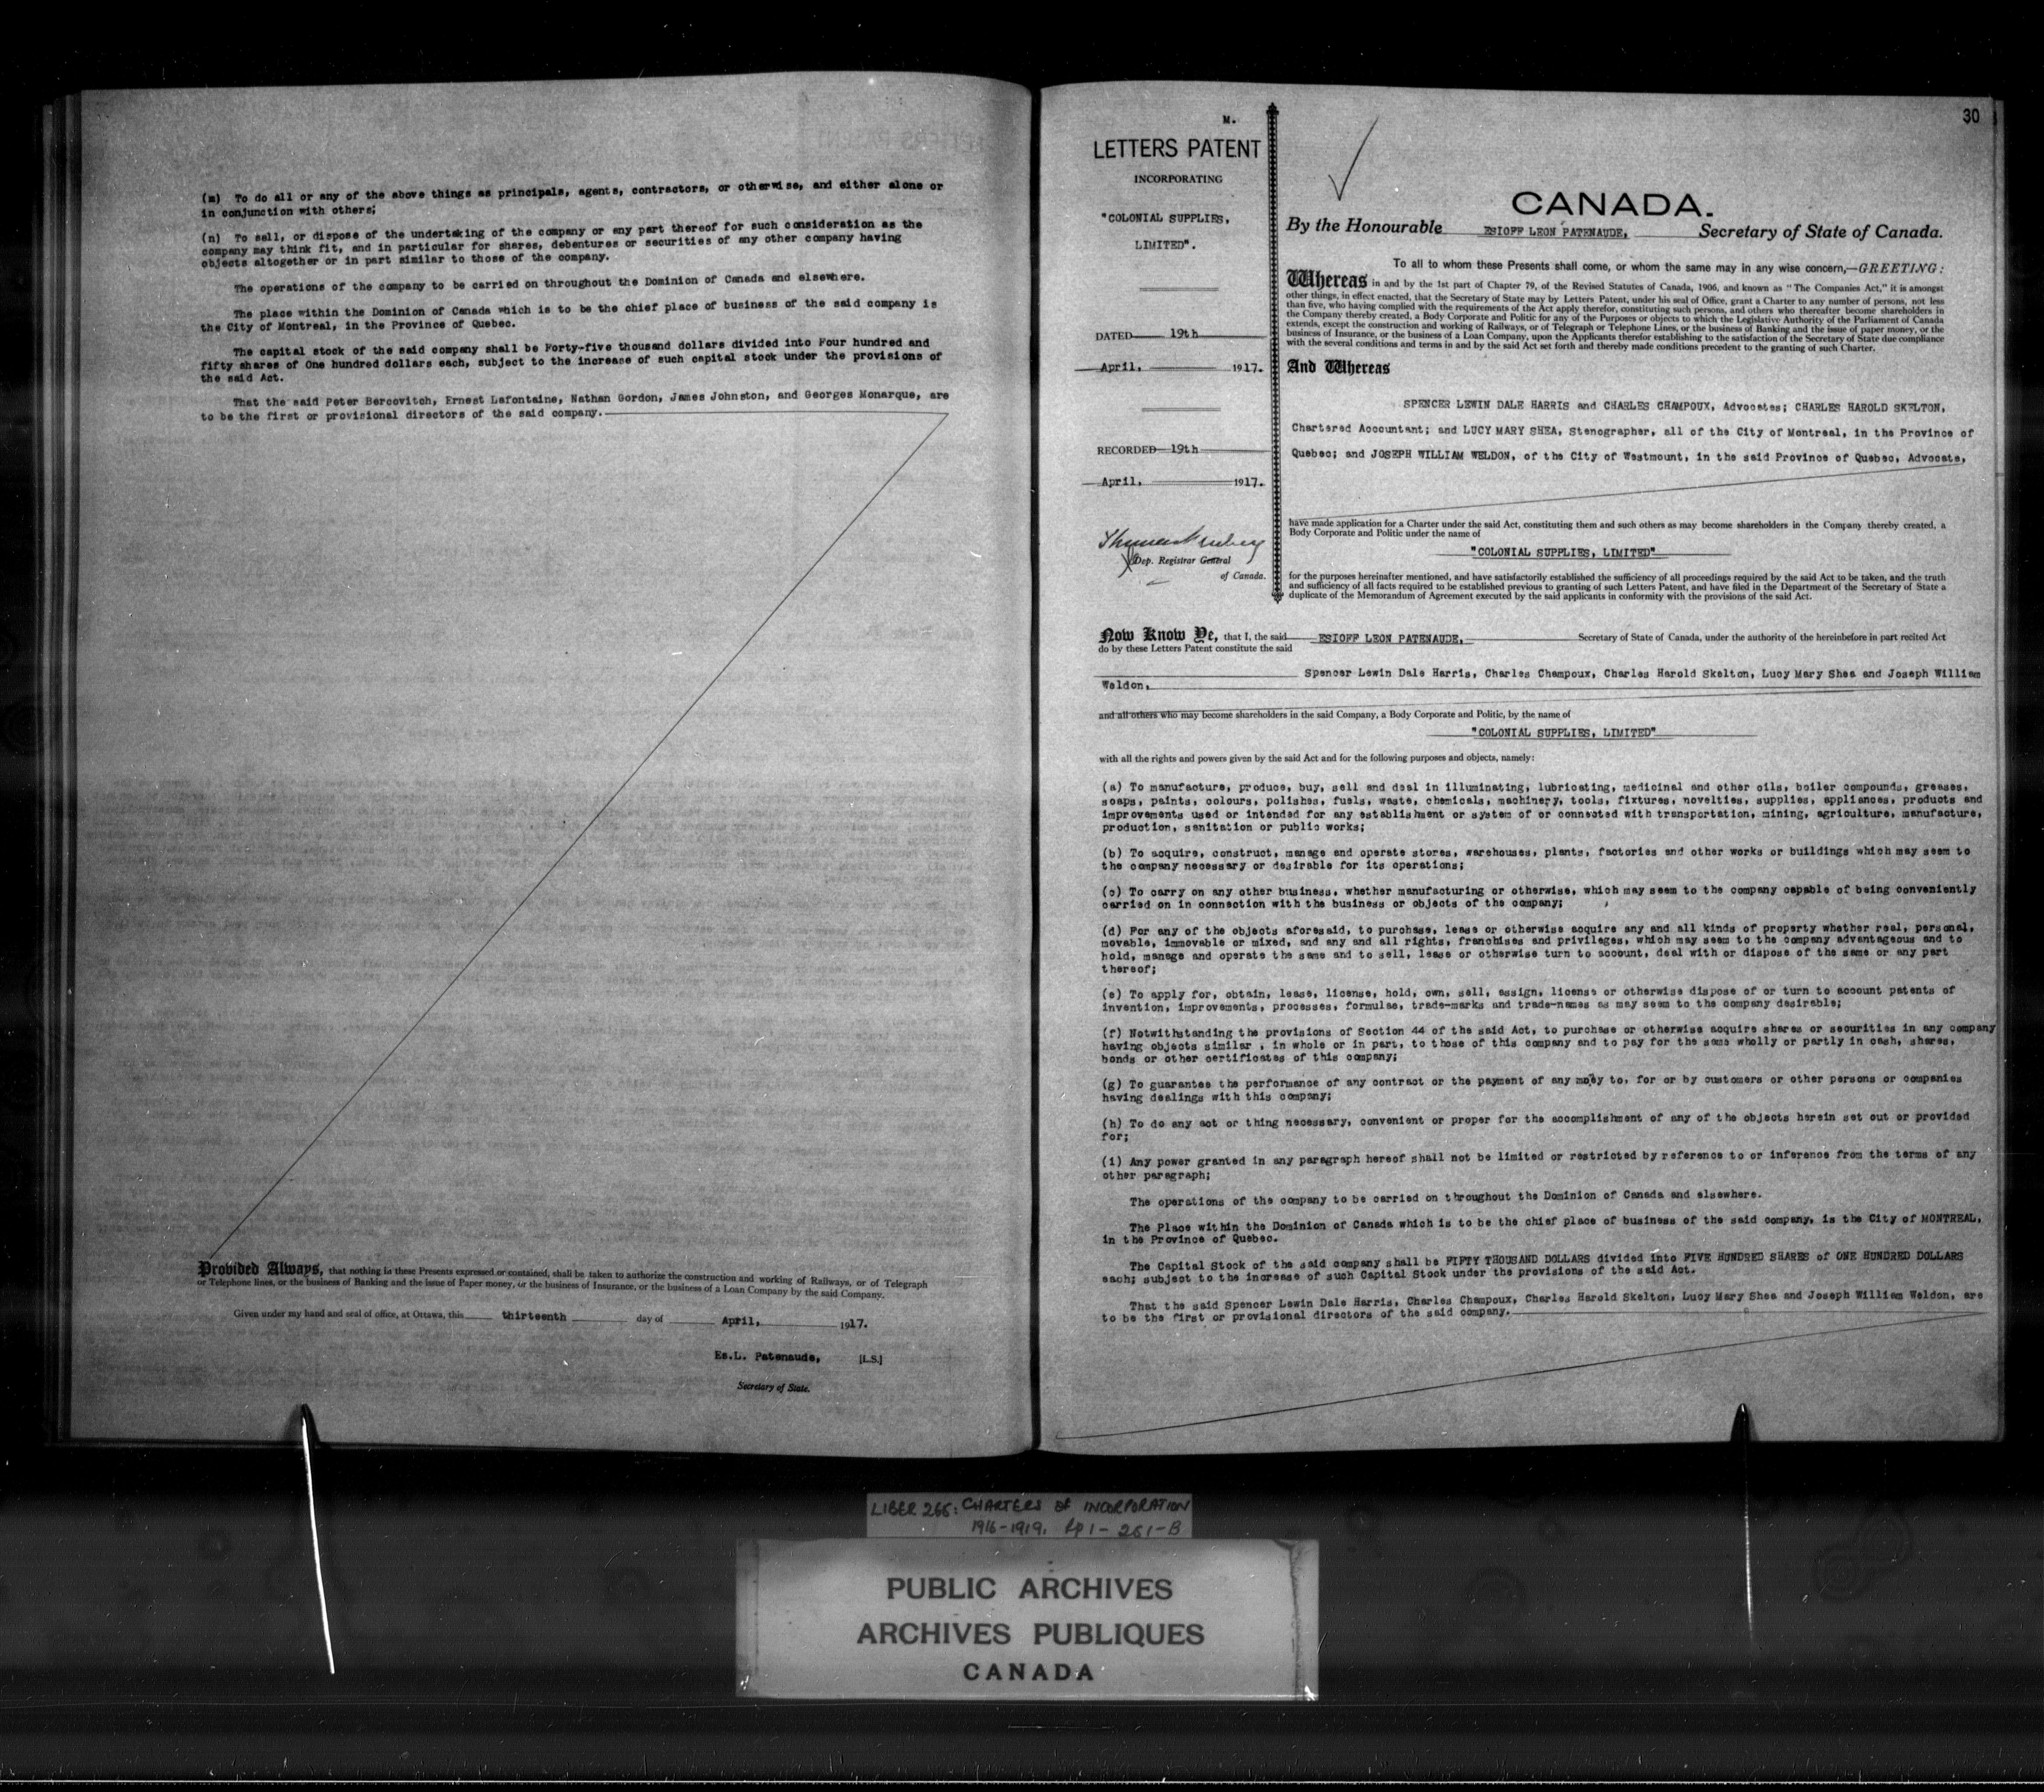 (m) To do all or any of the above things as principals, agents, contractors, or otherwise, and either alone or
in conjunction with others;
(n) To sell, or dispose of the undertaking of the company or any part thereof for such consideration as the
company may think fit, and in particular for shares, debentures or securities of any other company having
objects altogether or in part similar to those of the company.
The operations of the company to be carried on throughout the Dominion of Canada and elsewhere.
The place within the Dominion of Canada which is to be the chief place of business of the said company is
the City of Montreal, in the Province of Quebec.
The capital stock of the said company shall be Forty-five thousand dollars divided into Four hundred and
fifty shares of One hundred dollars each, subject to the increase of such capital stock under the provisions of
the said Act.
That the said Peter Bercovitch, Ernest Lafontaine, Nathan Gordon, James Johnston, and Georges Monarque, are
to be the first or provisional directors of the said company.
Provided Always, that nothing in these Presents expressed or contained, shall be taken to authorize the construction and working of Railways, or of Telegraph
or Telephone lines, or the business of Banking and the issue of Paper money, or the business of Insurance, or the business of a Loan Company by the said Company.
Given under my hand and seal of office, at Ottawa, this thirteenth day of April, 1917.
Es.L. Patenaude, [L.S.]
Secretary of State.
30
M.
LETTERS PATENT
INCORPORATING
"COLONIAL SUPPLIES,
LIMITED".
DATED 19th
April, 1917.
RECORDED 19th
April, 1917.
Dep. Registrar General
of Canada.
CANADA.
By the Honourable ESIOFF LEON PATENAUDE, Secretary of State of Canada.
To all to whom these Presents shall come, or whom the same may in any wise concern,—GREETING:
Whereas in and by the 1st part of Chapter 79, of the Revised Statutes of Canada, 1906, and known as "The Companies Act," it is amongst
other things, in effect enacted, that the Secretary of State may by Letters Patent, under his seal of Office, grant a Charter to any number of persons, not less
than five, who having complied with the requirements of the Act apply therefor, constituting such persons, and others who thereafter become shareholders in
the Company thereby created, a Body Corporate and Politic for any of the Purposes or objects to which the Legislative Authority of the Parliament of Canada
extends, except the construction and working of Railways, or of Telegraph or Telephone Lines, or the business of Banking and the issue of paper money, or the
business of Insurance, or the business of a Loan Company, upon the Applicants therefor establishing to the satisfaction of the Secretary of State due compliance
with the several conditions and terms in and by the said Act set forth and thereby made conditions precedent to the granting of such Charter.
And Whereas
SPENCER LEWIN DALE HARRIS and CHARLES CHAMPOUX, Advocates; CHARLES HAROLD SKELTON,
Chartered Accountant; and LUCY MARY SHEA, Stenographer, all of the City of Montreal, in the Province of
Quebec; and JOSEPH WILLIAM WELDON, of the City of Westmount, in the said Province of Quebec, Advocate,
have made application for a Charter under the said Act, constituting them and such others as may become shareholders in the Company thereby created, a
Body Corporate and Politic under the name of
"COLONIAL SUPPLIES, LIMITED"
for the purposes hereinafter mentioned, and have satisfactorily established the sufficiency of all proceedings required by the said Act to be taken, and the truth
and sufficiency of all facts required to be established previous to granting of such Letters Patent, and have filed in the Department of the Secretary of State a
duplicate of the Memorandum of Agreement executed by the said applicants in conformity with the provisions of the said Act.
Now Know Ye, that I, the said ESIOFF LEON PATENAUDE, Secretary of State of Canada, under the authority of the hereinbefore in part recited Act
do by these Letters Patent constitute the said
Spencer Lewin Dale Harris, Charles Champoux, Charles Harold Skelton, Lucy Mary Shea and Joseph William
Weldon,
and all others who may become shareholders in the said Company, a Body Corporate and Politic, by the name of
"COLONIAL SUPPLIES, LIMITED"
with all the rights and powers given by the said Act and for the following purposes and objects, namely:
(a) To manufacture, produce, buy, sell and deal in illuminating, lubricating, medicinal and other oils, boiler compounds, greases,
soaps, paints, colours, polishes, fuels, waste, chemicals, machinery, tools, fixtures, novelties, supplies, appliances, products and
improvements used or intended for any establishment or system of or connected with transportation, mining, agriculture, manufacture,
production, sanitation or public works;
(b) To acquire, construct, manage and operate stores, warehouses, plants, factories and other works or buildings which may seem to
the company necessary or desirable for its operations;
(c) To carry on any other business, whether manufacturing or otherwise, which may seem to the company capable of being conveniently
carried on in connection with the business or objects of the company;
(d) For any of the objects aforesaid, to purchase, lease or otherwise acquire any and all kinds of property whether real, personal,
movable, immovable or mixed, and any and all rights, franchises and privileges, which may seem to the company advantageous and to
hold, manage and operate the same and to sell, lease or otherwise turn to account, deal with or dispose of the same or any part
thereof;
(e) To apply for, obtain, lease, license, hold, own, sell, assign, license or otherwise dispose of or turn to account patents of
invention, improvements, processes, formulae, trade-marks and trade-names as may seem to the company desirable;
(f) Notwithstanding the provisions of Section 44 of the said Act, to purchase or otherwise acquire shares or securities in any company
having objects similar , in whole or in part, to those of this company and to pay for the same wholly or partly in cash, shares,
bonds or other certificates of this company;
(g) To guarantee the performance of any contract or the payment of any money to, for or by customers or other persons or companies
having dealings with this company;
(h) To do any act or thing necessary, convenient or proper for the accomplishment of any of the objects herein set out or provided
for;
(i) Any power granted in any paragraph hereof shall not be limited or restricted by reference to or inference from the terms of any
other paragraph;
The operations of the company to be carried on throughout the Dominion of Canada and elsewhere.
The Place within the Dominion of Canada which is to be the chief place of business of the said company, is the City of MONTREAL,
in the Province of Quebec.
The Capital Stock of the said company shall be FIFTY THOUSAND DOLLARS divided into FIVE HUNDRED SHARES of ONE HUNDRED DOLLARS
each; subject to the increase of such Capital Stock under the provisions of the said Act.
That the said Spencer Lewin Dale Harris, Charles Champoux, Charles Harold Skelton, Lucy Mary Shea and Joseph William Weldon, are
to be the first or provisional directors of the said company.
LIBER 266: CHARTERS OF INCORPORATION
1916-1919. pp 1-261-B
PUBLIC ARCHIVES
ARCHIVES PUBLIQUES
CANADA